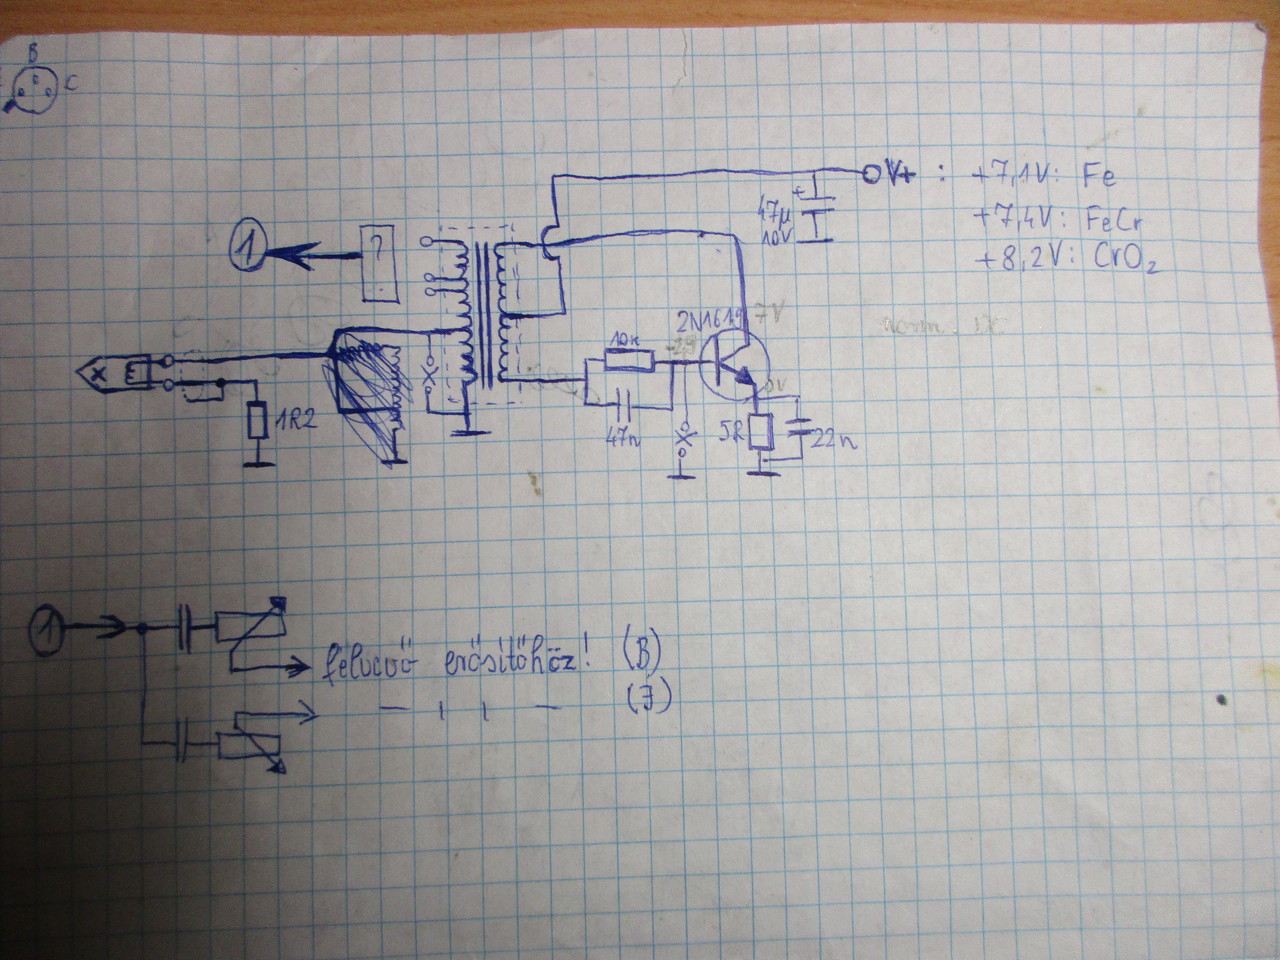 B
C
V+ : +7,1V: Fe
47µ
10V
+7,4V: FeCr
+8,2V: CrO₂
1
?
2N1613
7V
norm. DC
10k
x
1R2
0V
47n
5R
22n
1
felvevő erősítőhöz! (B)
— ı ı — (J)